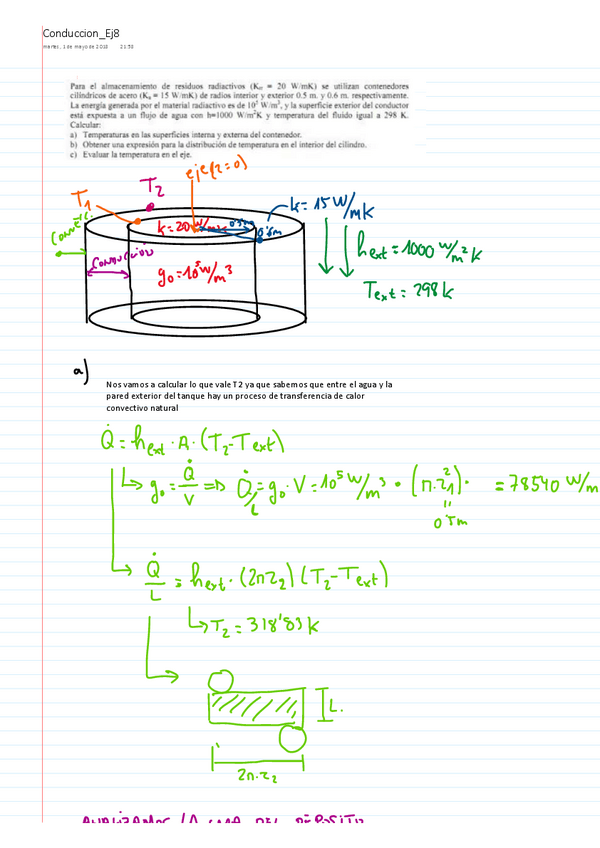 Conduccion_Ej8
martes, 1 de mayo de 2018 21:38
Para el almacenamiento de residuos radiactivos (Krr = 20 W/mK) se utilizan contenedores
cilíndricos de acero (Ka = 15 W/mK) de radios interior y exterior 0.5 m. y 0.6 m. respectivamente.
La energía generada por el material radiactivo es de 10⁵ W/m³, y la superficie exterior del conductor
está expuesta a un flujo de agua con h=1000 W/m²K y temperatura del fluido igual a 298 K.
Calcular:
a) Temperaturas en las superficies interna y externa del contenedor.
b) Obtener una expresión para la distribución de temperatura en el interior del cilindro.
c) Evaluar la temperatura en el eje.
T₁
T₂
eje(r=0)
k=15 W/mK
k=20 W/mK
0'5m
0'6m
CONVEC.
CONDUCCIÓN
g₀=10⁵ W/m³
hext=1000 W/m²K
Text=298k
a)
Nos vamos a calcular lo que vale T2 ya que sabemos que entre el agua y la
pared exterior del tanque hay un proceso de transferencia de calor
convectivo natural
Q̇=hext·A·(T₂-Text)
g₀=Q̇/V => Q̇/L=g₀·V=10⁵ W/m³·(π·r₁²)· =78540 W/m
0'5m
Q̇/L=hext·(2πr₂)(T₂-Text)
T₂=318'83K
L.
2π·r₂
ANALIZAMOS LA CAPA DEL DEPÓSITO